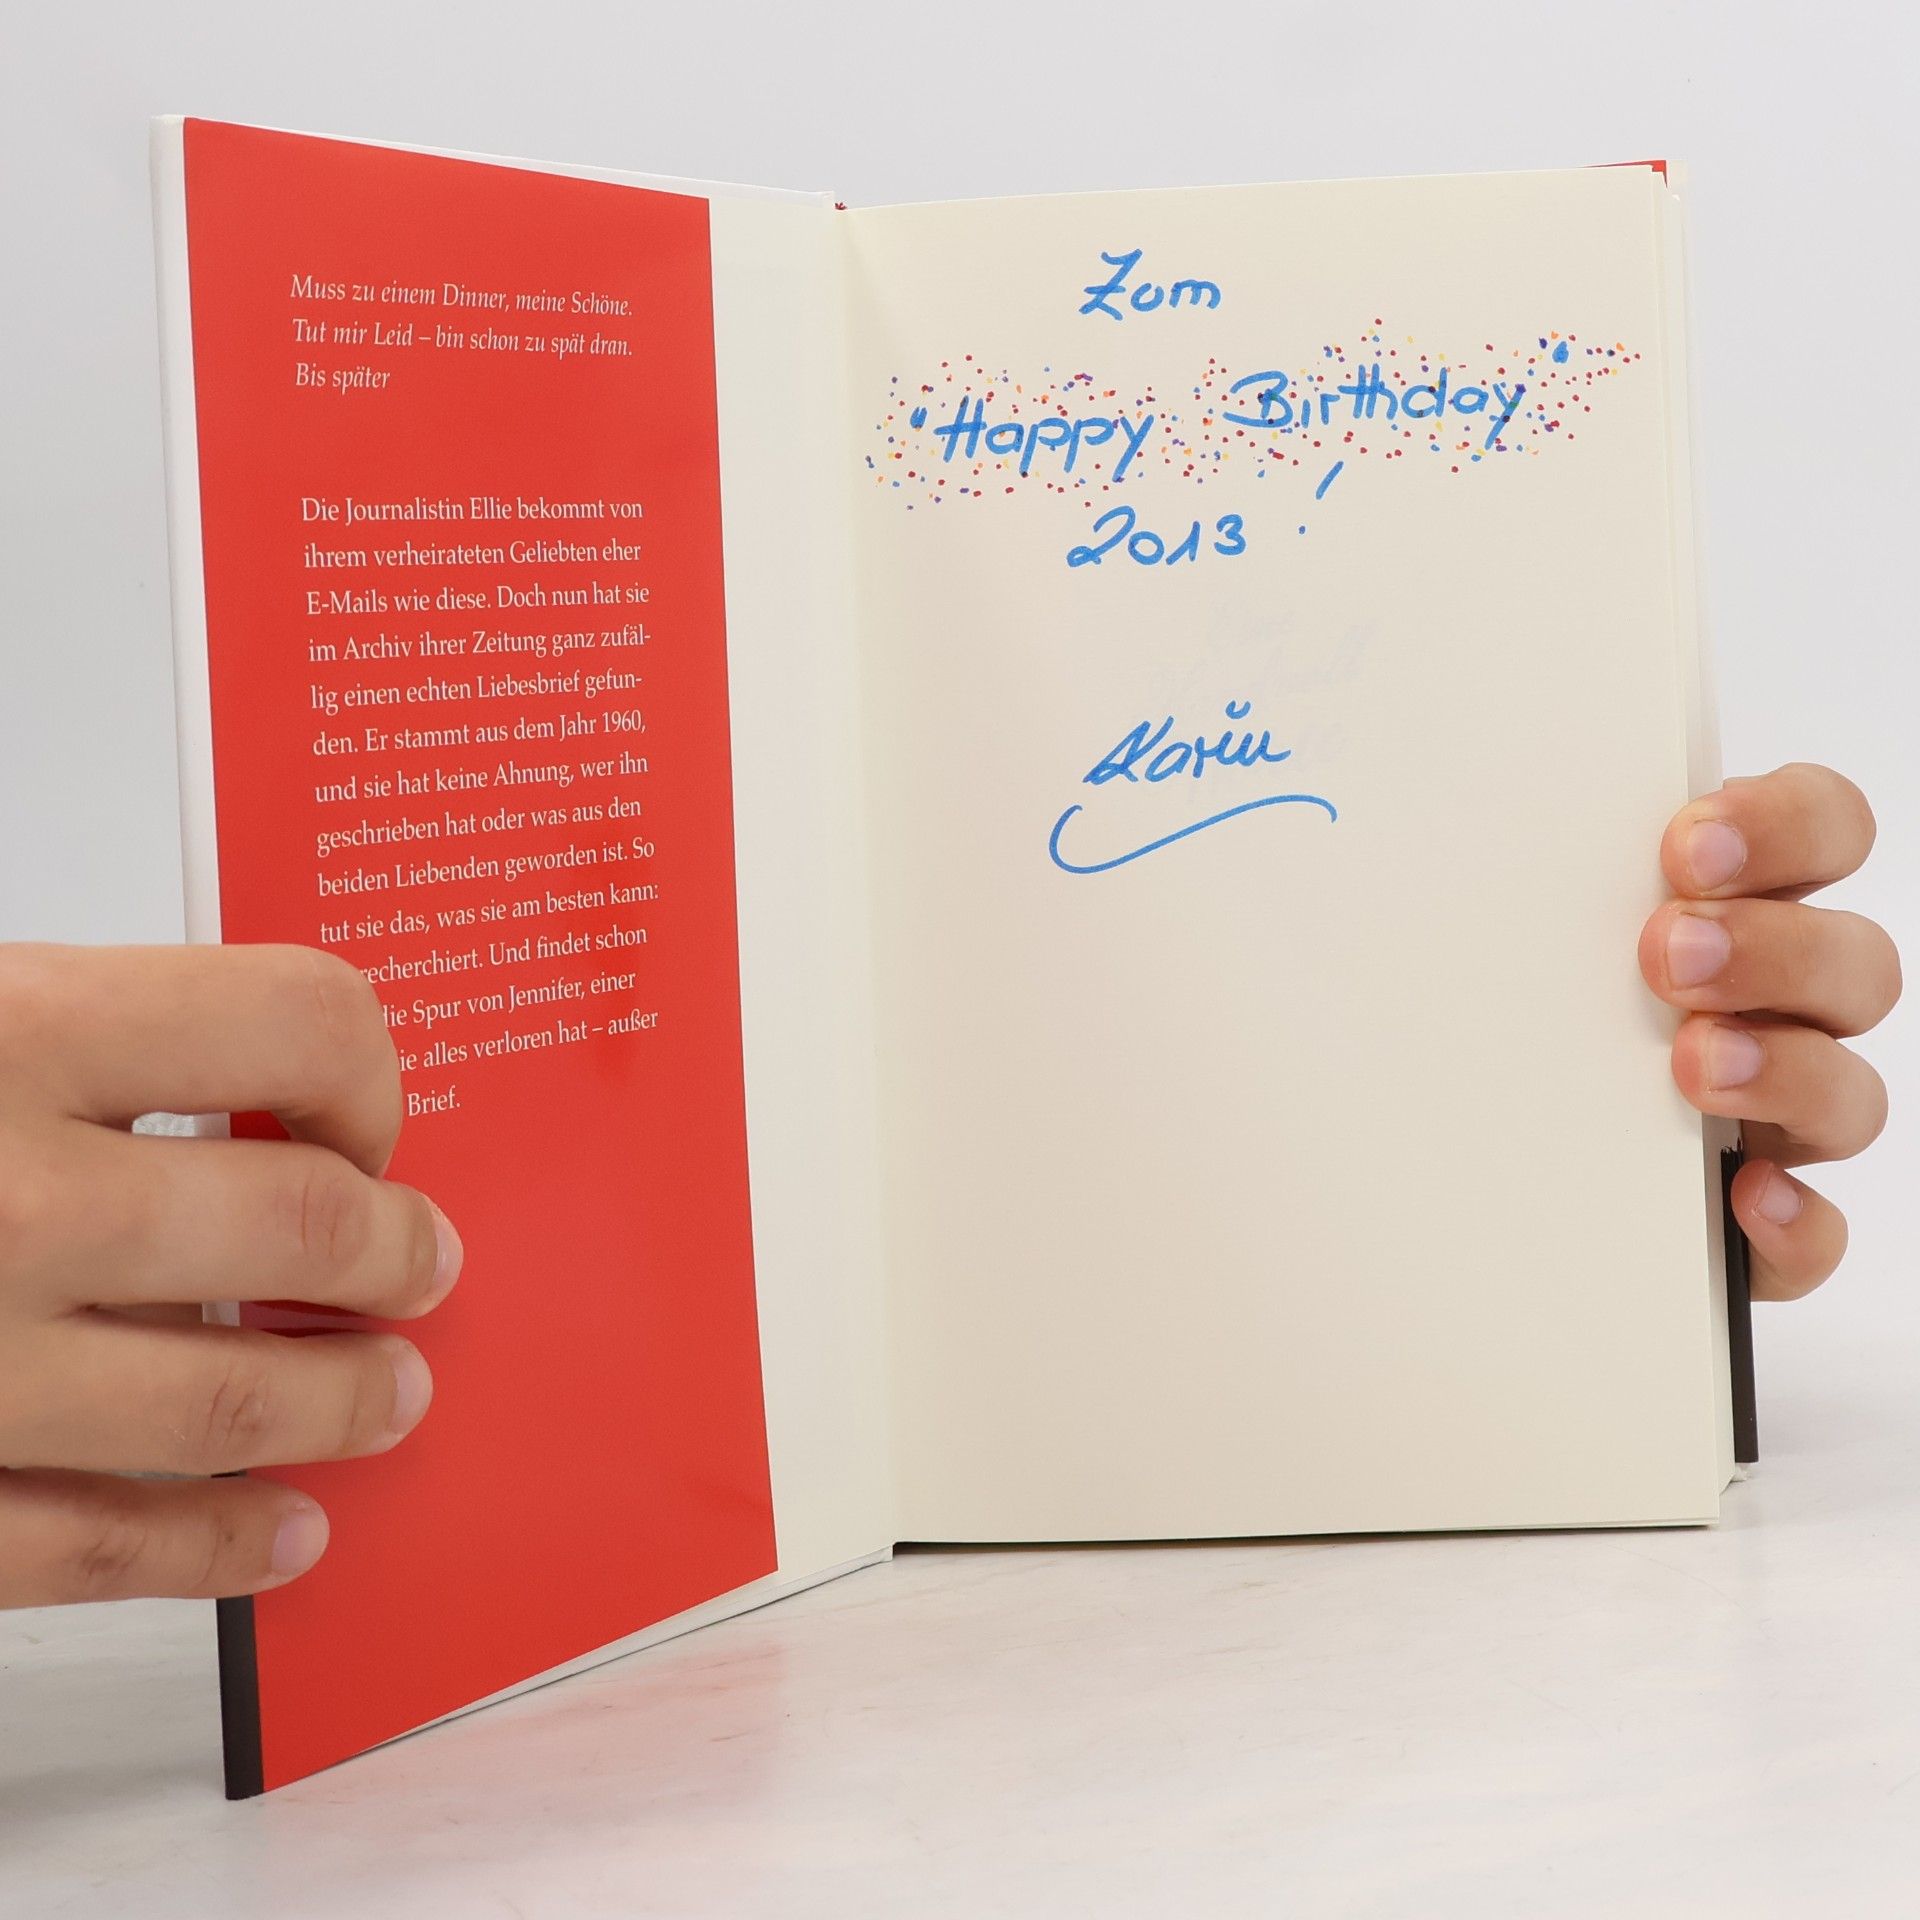 Muss zu einem Dinner, meine Schöne.
Tut mir Leid – bin schon zu spät dran.
Bis später
Die Journalistin Ellie bekommt von
ihrem verheirateten Geliebten eher
E-Mails wie diese. Doch nun hat sie
im Archiv ihrer Zeitung ganz zufäl-
lig einen echten Liebesbrief gefun-
den. Er stammt aus dem Jahr 1960,
und sie hat keine Ahnung, wer ihn
geschrieben hat oder was aus den
beiden Liebenden geworden ist. So
tut sie das, was sie am besten kann:
recherchiert. Und findet schon
die Spur von Jennifer, einer
alles verloren hat – außer
Brief.
Zum
"Happy Birthday"
2013!
Karin